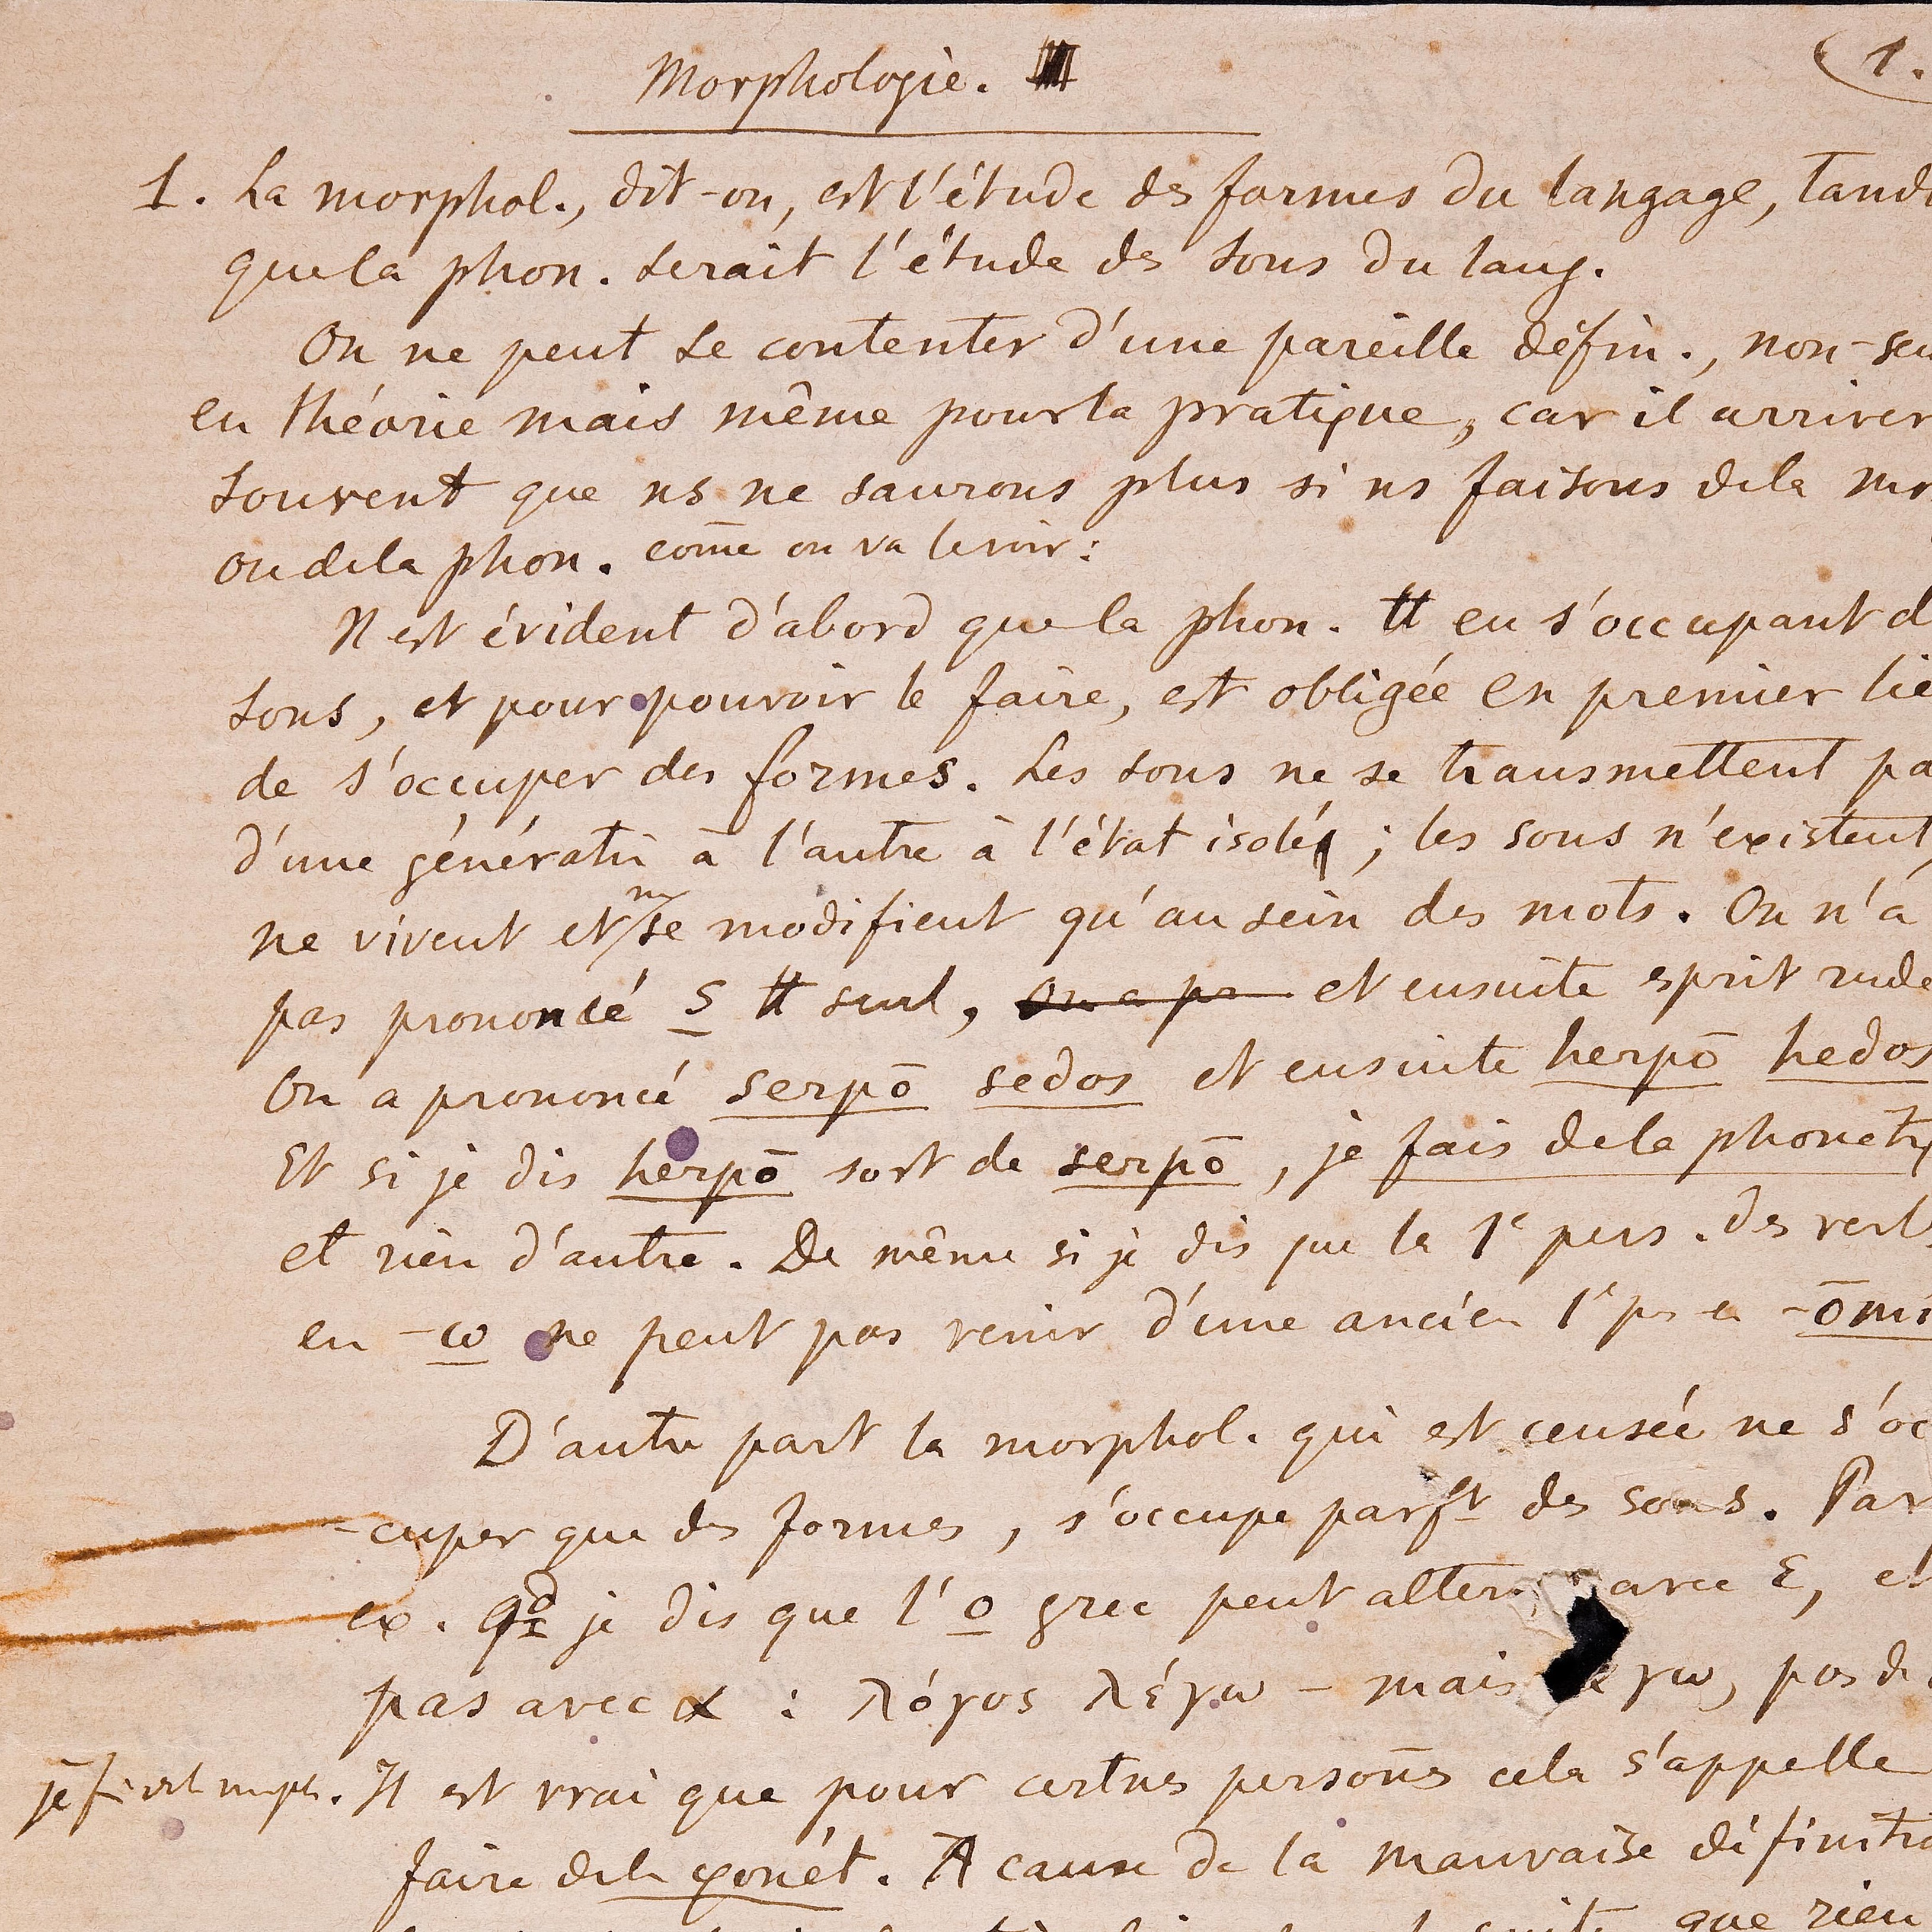 Morphologie.
(1.
1. La morphol., dit-on, est l'étude des formes du langage, tand
que la phon. serait l'étude des sons du lang.
On ne peut se contenter d'une pareille défin., non-seu
en théorie mais même pour la pratique, car il arriver
souvent que ns ne saurons plus si ns faisons de la mo
ou de la phon. com̄e on va le voir :
Il est évident d'abord que la phon. en s'occupant d
sons, et pour pouvoir le faire, est obligée en premier lie
de s'occuper des formes. Les sons ne se transmettent pa
d'une génératn à l'autre à l'état isolé ; les sons n'existent,
ne vivent et ne se modifient qu'au sein des mots. On n'a
pas prononcé s seul, on a pr et ensuite esprit rude
On a prononcé serpō sedos et ensuite herpō hedos
Et si je dis herpō sort de serpō, je fais de la phonétiq
et rien d'autre. De même si je dis que la 1e pers. des verb
en -ω ne peut pas venir d'une ancien 1e ps en -ōmi
D'autre part la morphol. qui est censée ne s'oc
-cuper que des formes, s'occupe parft des sons. Par
ex. qd je dis que l'o grec peut altern avec ε, et
pas avec α : λόγος λέγω – mais γω, pas de
je f morph. Il est vrai que pour certnes person̄es cela s'appelle
faire de la φonét. A cause de la mauvaise définitio
que rien